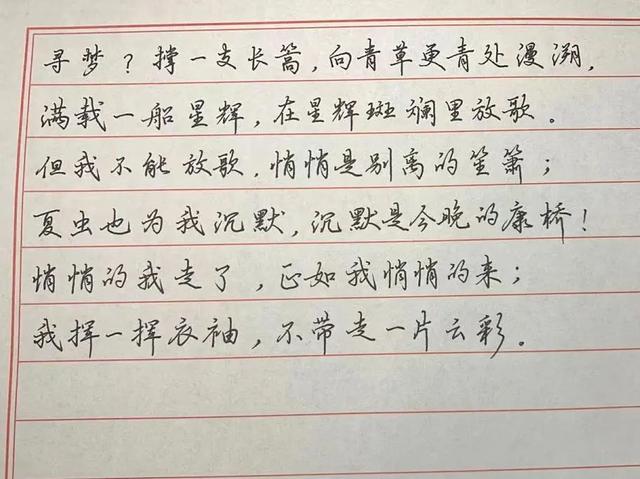 寻梦？撑一支长篙，向青草更青处漫溯，
满载一船星辉，在星辉斑斓里放歌。
但我不能放歌，悄悄是别离的笙箫；
夏虫也为我沉默，沉默是今晚的康桥！
悄悄的我走了，正如我悄悄的来；
我挥一挥衣袖，不带走一片云彩。